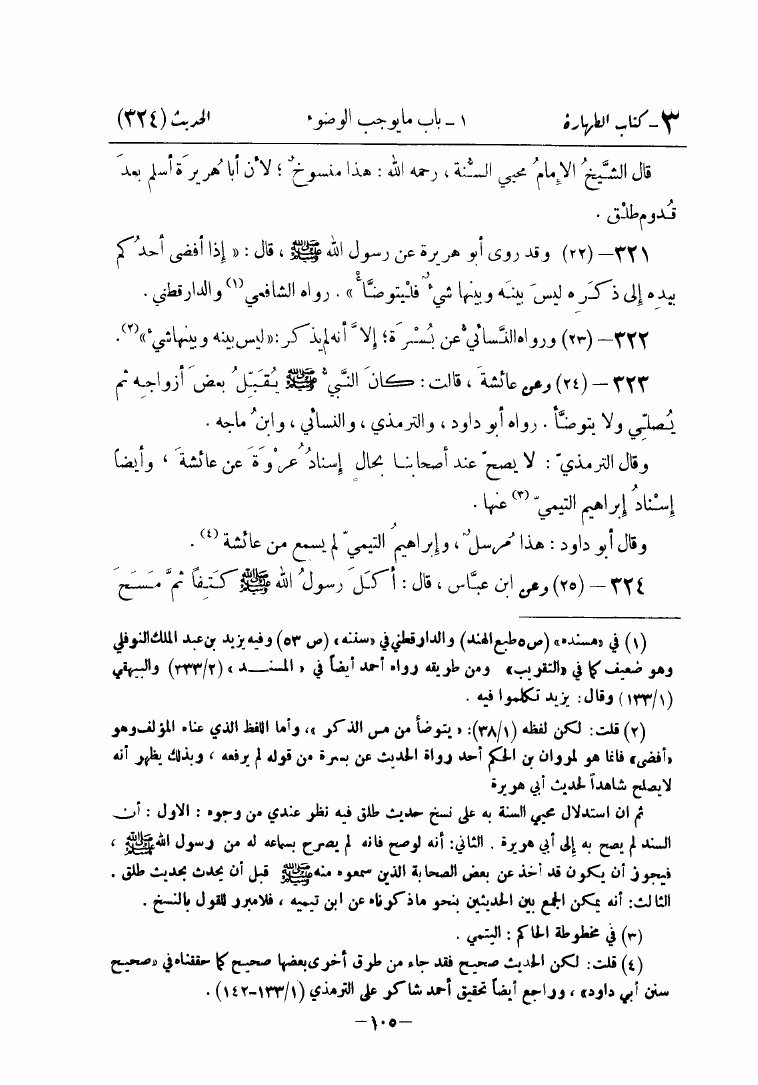 ٣ - كتاب الطهارة ١ - باب ما يوجب الوضوء الحديث (٣٢٤)
قال الشَّيخُ الإِمامُ محيي السُّنة ، رحمه الله : هذا منسوخٌ ؛ لأن أبا هُريرَةَ أسلم بعدَ
قُدوم طلْق .
٣٢١ – (٢٢) وقد روى أبو هريرة عن رسول الله ﷺ ، قال : « إذا أفضى أحدُكم
بيدِه إلى ذكَرِه ليسَ بينَه وبينها شيءٌ فلْيتوضَّأْ » . رواه الشافعي (١) والدارقطني .
٣٢٢ – (٢٣) ورواه النَّسائيُّ عن بُسْرَة؛ إلاَّ أنه لم يذكر : «ليس بينه وبينها شيءٌ»(٢).
٣٢٣ – (٢٤) وعن عائشةَ ، قالت : كانَ النَّبيُّ ﷺ يُقبِّلُ بعضَ أزواجِه ثم
يُصلّي ولا يتوضَّأُ . رواه أبو داود ، والترمذي ، والنسائي ، وابنُ ماجه .
وقال الترمذيّ : لا يصحّ عند أصحابنا بحالٍ إسنادُ عُرْوَةَ عن عائشةَ ، وأيضاً
إسْنادُ إبراهيم التيميّ (٣) عنها .
وقال أبو داود : هذا مُرسلٌ ، وإبراهيمُ التيميّ لم يسمع من عائشة (٤) .
٣٢٤ – (٢٥) وعن ابن عبَّاس ، قال : أكلَ رسولُ الله ﷺ كَتِفاً ثمَّ مَسَحَ
(١) في «مسنده» (ص ٥ طبع الهند) والدارقطني في «سننه» (ص ٥٣) وفيه يزيد بن عبد الملك النوفلي
وهو ضعيف كما في «التقريب» ومن طريقه رواه أحمد أيضاً في « المسند » (٢/ ٣٣٣) والبيهقي
(١/ ١٣٣) وقال: يزيد تكلموا فيه .
(٢) قلت: لكن لفظه (١/ ٣٨): « يتوضأ من مس الذكر »، وأما اللفظ الذي عناه المؤلف وهو
«أفضى» فانما هو لمروان بن الحكم أحد رواة الحديث عن بسرة من قوله لم يرفعه ، وبذلك يظهر أنه
لا يصلح شاهداً لحديث أبي هريرة
ثم ان استدلال محيي السنة به على نسخ حديث طلق فيه نظر عندي من وجوه : الاول : أن
السند لم يصح به إلى أبي هريرة . الثاني: أنه لوصح فانه لم يصرح بسماعه له من رسول الله ﷺ ،
فيجوز أن يكون قد أخذ عن بعض الصحابة الذين سمعوه منه ﷺ قبل أن يحدث بحديث طلق .
الثالث: أنه يمكن الجمع بين الحديثين بنحو ماذكرناه عن ابن تيميه ، فلامبرر للقول بالنسخ .
(٣) في مخطوطة الحاكم : اليتمي .
(٤) قلت: لكن الحديث صحيح فقد جاء من طرق أخرى بعضها صحيح كما حققناه في «صحيح
سنن أبي داود» ، وراجع أيضاً تحقيق أحمد شاكر على الترمذي (١/ ١٣٣-١٤٢) .
–١٠٥–